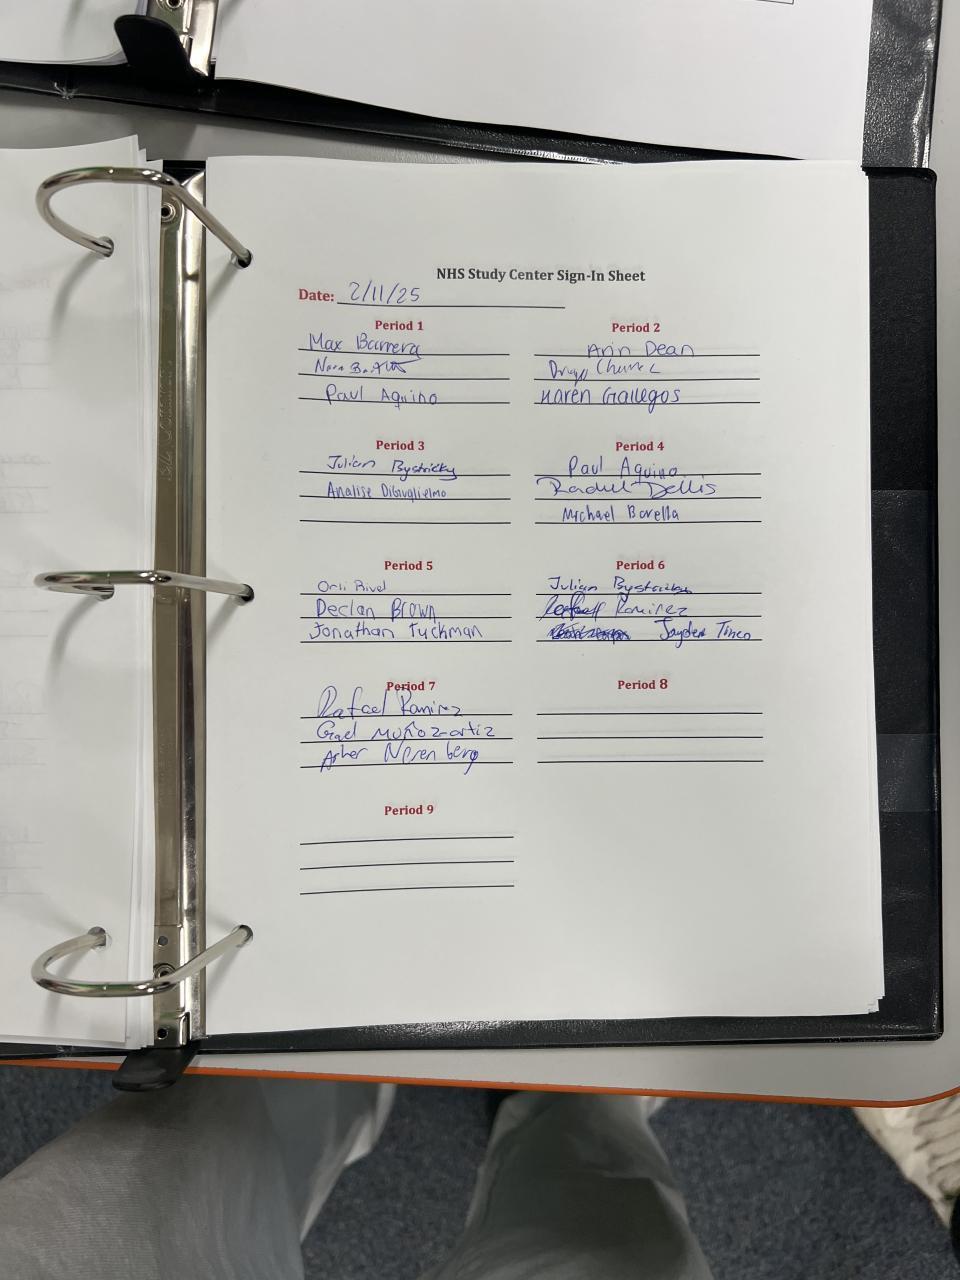 NHS Study Center Sign-In Sheet
Date: 2/11/25
Period 1
Max Barrera
Paul Aquino
Period 2
Dean
Karen Gallegos
Period 3
Julian Bystricky
Analise DiGuglielmo
Period 4
Paul Aquino
Rachel Dellis
Michael Borella
Period 5
Orli Rivel
Declan Brown
Jonathan Tuckman
Period 6
Julian Bystricky
Rafael Ramirez
Jayden Tinco
Period 7
Rafael Ramirez
Gael Muñoz-ortiz
Asher Nerenberg
Period 8
Period 9